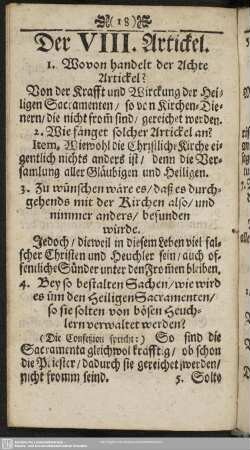 (18)
Der VIII. Artickel.
1. Wovon handelt der Achte
Artickel?
Von der Krafft und Wirckung der Hei-
ligen Sacramenten / so von Kirchen-Die-
nern / die nicht from̃ sind / gereichet werden.
2. Wie fänget solcher Artickel an?
Item, Wiewohl die Christliche Kirche ei-
gentlich nichts anders ist / denn die Ver-
samlung aller Gläubigen und Heiligen.
3. Zu wünschen wäre es / daß es durch-
gehends mit der Kirchen also / und
nimmer anders / befunden
würde.
Jedoch / dieweil in diesem Leben viel fal-
scher Christen und Heuchler sein / auch of-
fentliche Sünder unter den Frommen bleiben.
4. Bey so bestalten Sachen / wie wird
es üm den Heiligen Sacramenten /
so sie solten von bösen Heuch-
lern verwaltet werden?
(Die Confeßion spricht:) So sind die
Sacramenta gleichwol kräfftig / ob schon
die Priester / dadurch sie gereichet werden /
nicht fromm seind.
5. Solte